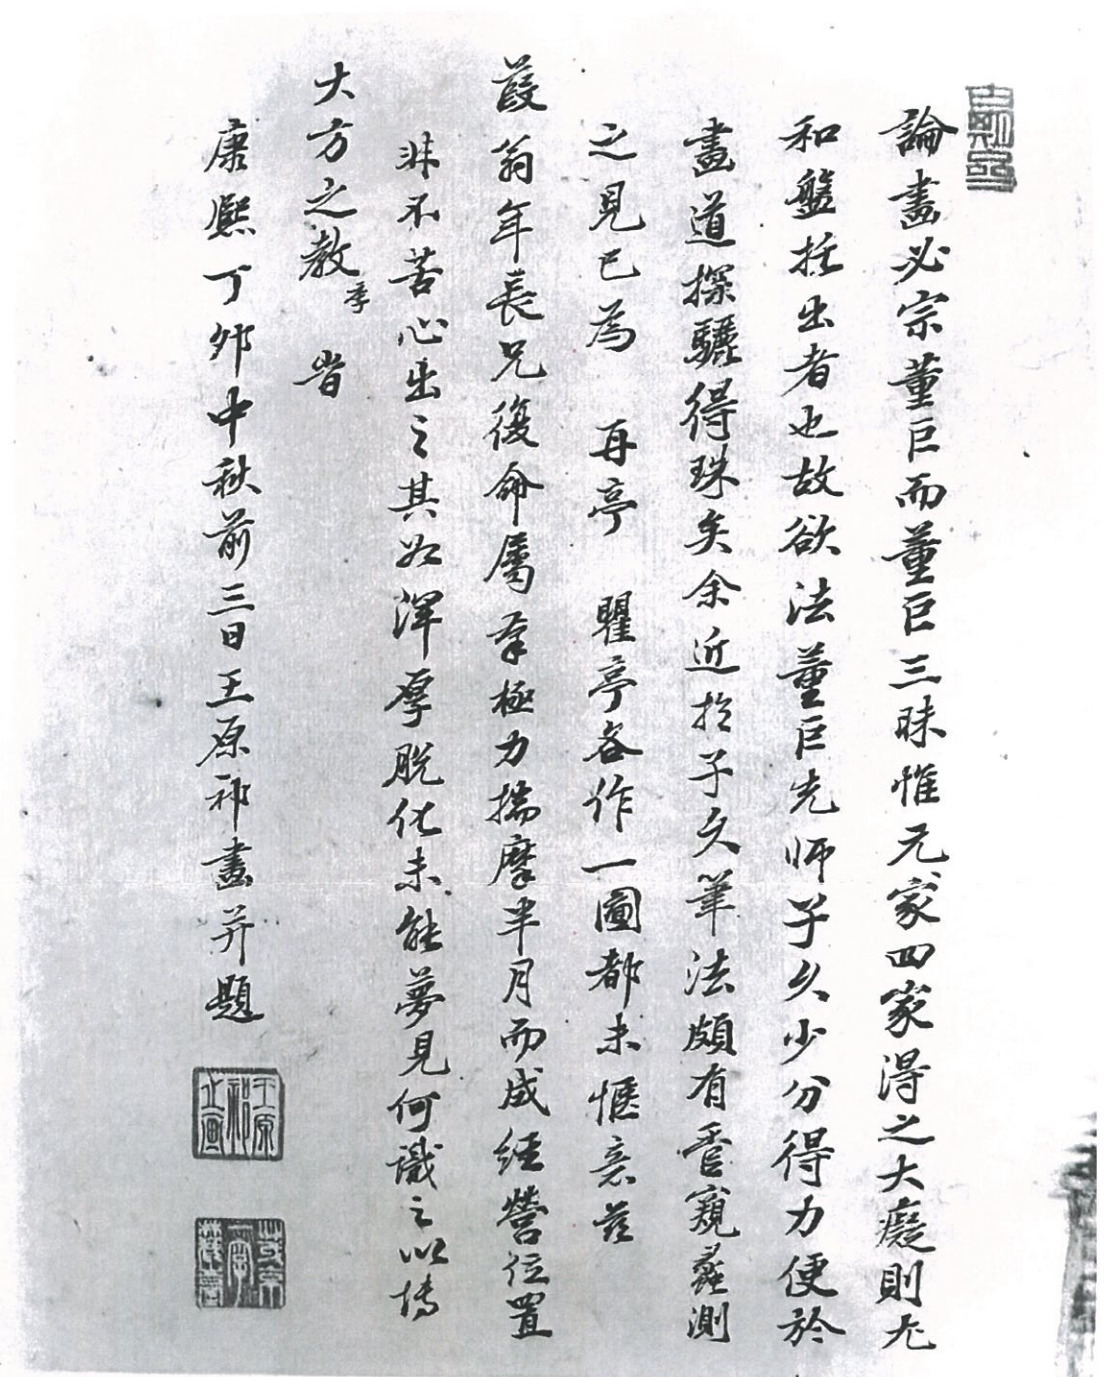 論畫必宗董巨而董巨三昧惟元家四家得之大癡則尤
和盤托出者也故欲法董巨先師子久少分得力便於
畫道探驪得珠矣余近於子久筆法頗有管窺蠡測
之見已為 再亭 瞿亭各作一圖都未愜意茲
葭翁年長兄復命屬極力揣摩半月而成經營位置
非不苦心出之其如渾厚脫化未能夢見何識之以博
大方之教 旹
康熙丁卯中秋前三日王原祁畫并題